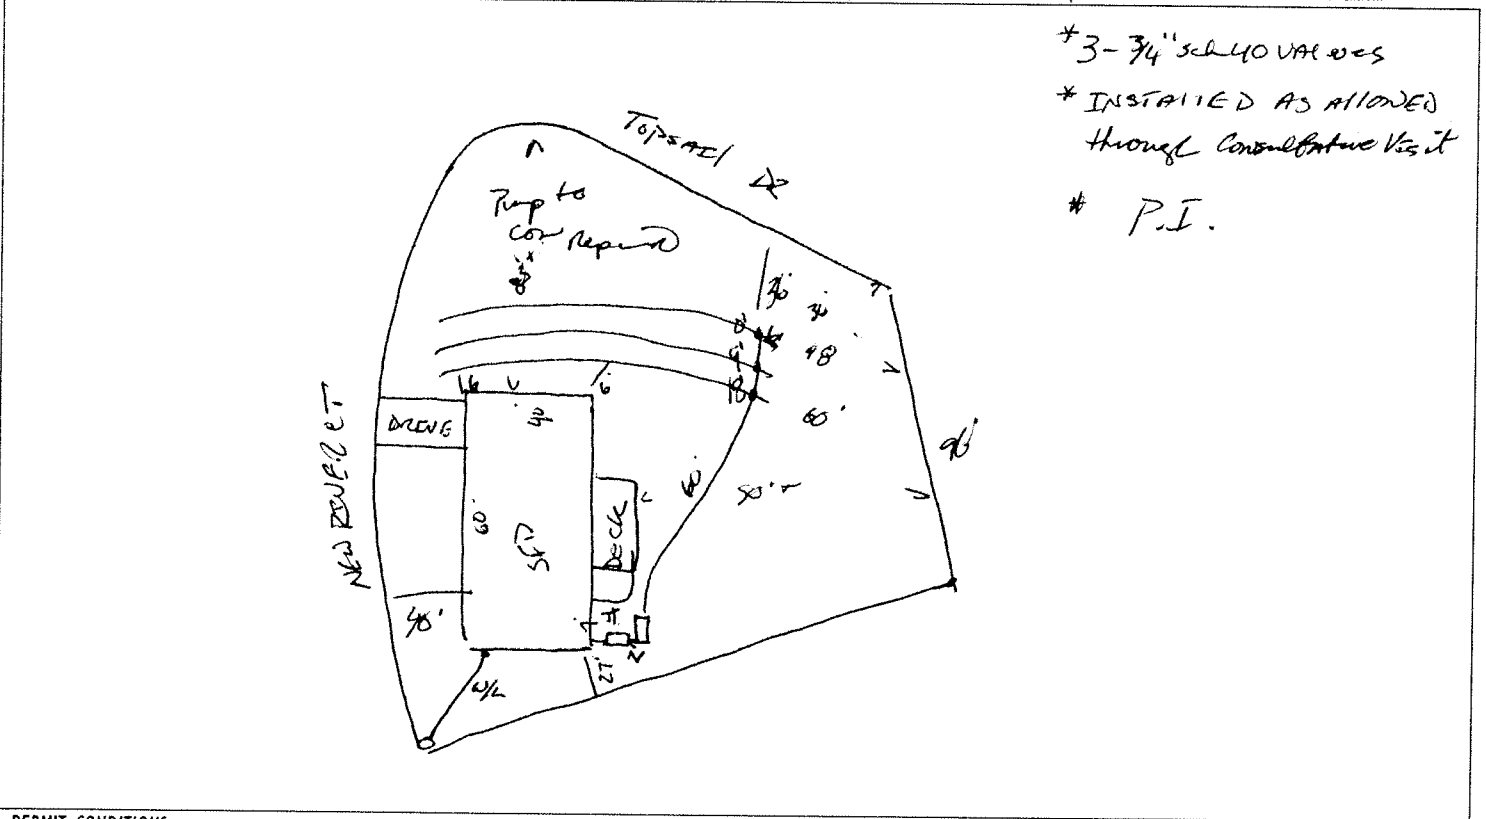 *3-3/4" sch 40 VALVES
* INSTALLED AS AllOWED
through Consultative Visit
* P.I.
TopsAIl DR
Pump to
Conv Repair
36'
36'
0'
9'
98
18
60'
6
6
40
DRIVE
NEW RIVER CT
96'
60'
50'+
60'
SFD
DECK
40'
27'
W/L
PERMIT CONDITIONS